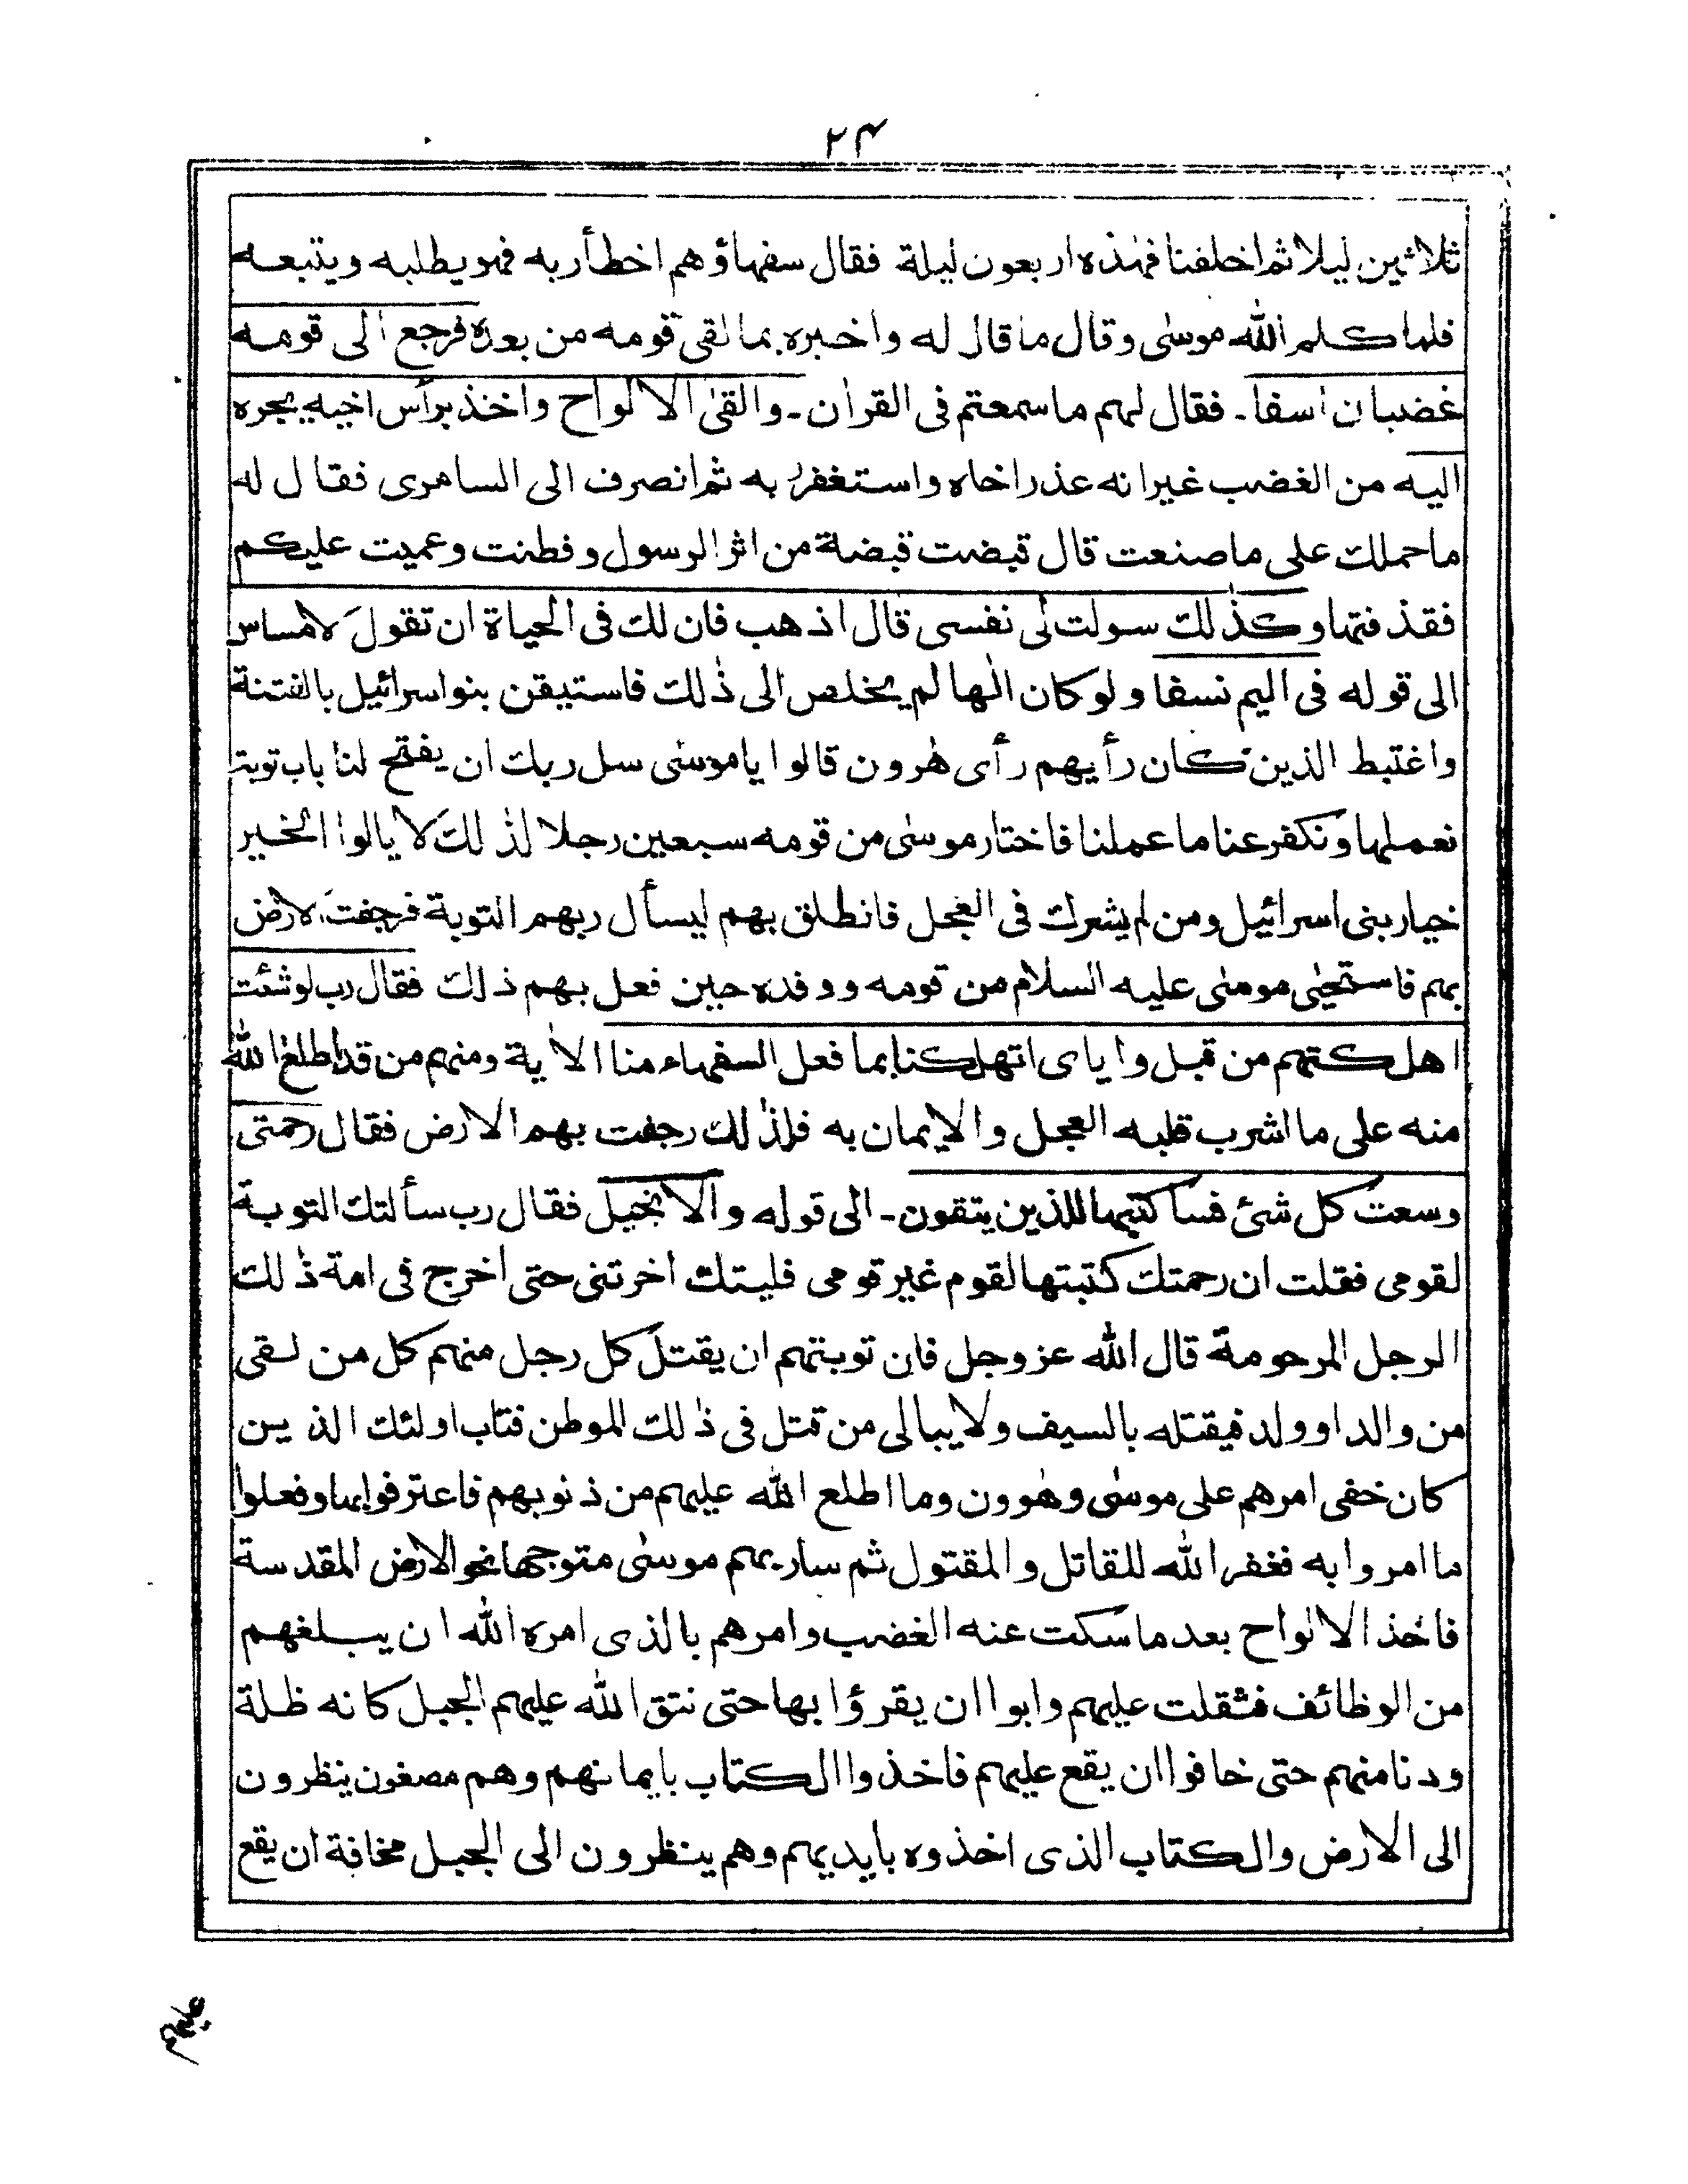 ٢٤
ثلاثين ليلا ثم اخلفنا فهٰذه اربعون ليلة فقال سفهاؤهم اخطأ ربه فهو يطلبه ويتبعه
فلما كلم الله موسٰى وقال ما قال له واخبره بما لقى قومه من بعده فرجع الى قومه
غضبان اسفا ـ فقال لهم ما سمعتم فى القراٰن ـ والقىٰ الالواح واخذ برأس اخيه يجره
اليه من الغضب غير انه عذر اخاه واستغفر به ثم انصرف الى السامرى فقال له
ما حملك على ما صنعت قال قبضت قبضة من اثر الرسول وفطنت وعميت عليكم
فقذ فتها وكذٰلك سولت لى نفسى قال اذهب فان لك فى الحياة ان تقول لامساس
الى قوله فى اليم نسفا ولو كان الٰها لم يخلص الى ذٰلك فاستيقن بنو اسرائيل بالفتنة
واغتبط الذين كان رأيهم رأى هٰرون قالوا ياموسٰى سل ربك ان يفتح لنا باب توبة
نعملها ونكفر عنا ما عملنا فاختار موسٰى من قومه سبعين رجلا لذٰلك لا يالوا الخير
خيار بنى اسرائيل ومن لم يشرك فى العجل فانطلق بهم ليسأل ربهم التوبة فرجفت الارض
بهم فاستحيٰى موسٰى عليه السلام من قومه ووفده حين فعل بهم ذلك فقال رب لو شئت
اهلكتهم من قبل واياى اتهلكنا بما فعل السفهاء منا الاٰية ومنهم من قد اطلع الله
منه على ما اشرب قلبه العجل والايمان به فلذٰلك رجفت بهم الارض فقال رحمتى
وسعت كل شئ فسا كتبها للذين يتقون ـ الى قوله والانجيل فقال رب سألتك التوبة
لقومى فقلت ان رحمتك كتبتها لقوم غير قومى فليتك اخرتنى حتى اخرج فى امة ذٰلك
الرجل المرحومة قال الله عز وجل فان توبتهم ان يقتل كل رجل منهم كل من لقى
من والد او ولد فيقتله بالسيف ولا يبالى من قتل فى ذٰلك الموطن فتاب اولئك الذين
كان خفى امرهم على موسٰى وهٰوون وما اطلع الله عليهم من ذنوبهم فاعترفوا بها وفعلوا
ما امروا به فغفر الله للقاتل والمقتول ثم سار بهم موسٰى متوجها نحو الارض المقدسة
فاخذ الالواح بعد ما سكت عنه الغضب وامرهم بالذى امره الله ان يبلغهم
من الوظائف فثقلت عليهم وابوا ان يقرؤا بها حتى نتق الله عليهم الجبل كانه ظلة
ودنا منهم حتى خافوا ان يقع عليهم فاخذوا الكتاب بايمانهم وهم مصغون ينظرون
الى الارض والكتاب الذى اخذوه بايديهم وهم ينظرون الى الجبل مخافة ان يقع
عليهم